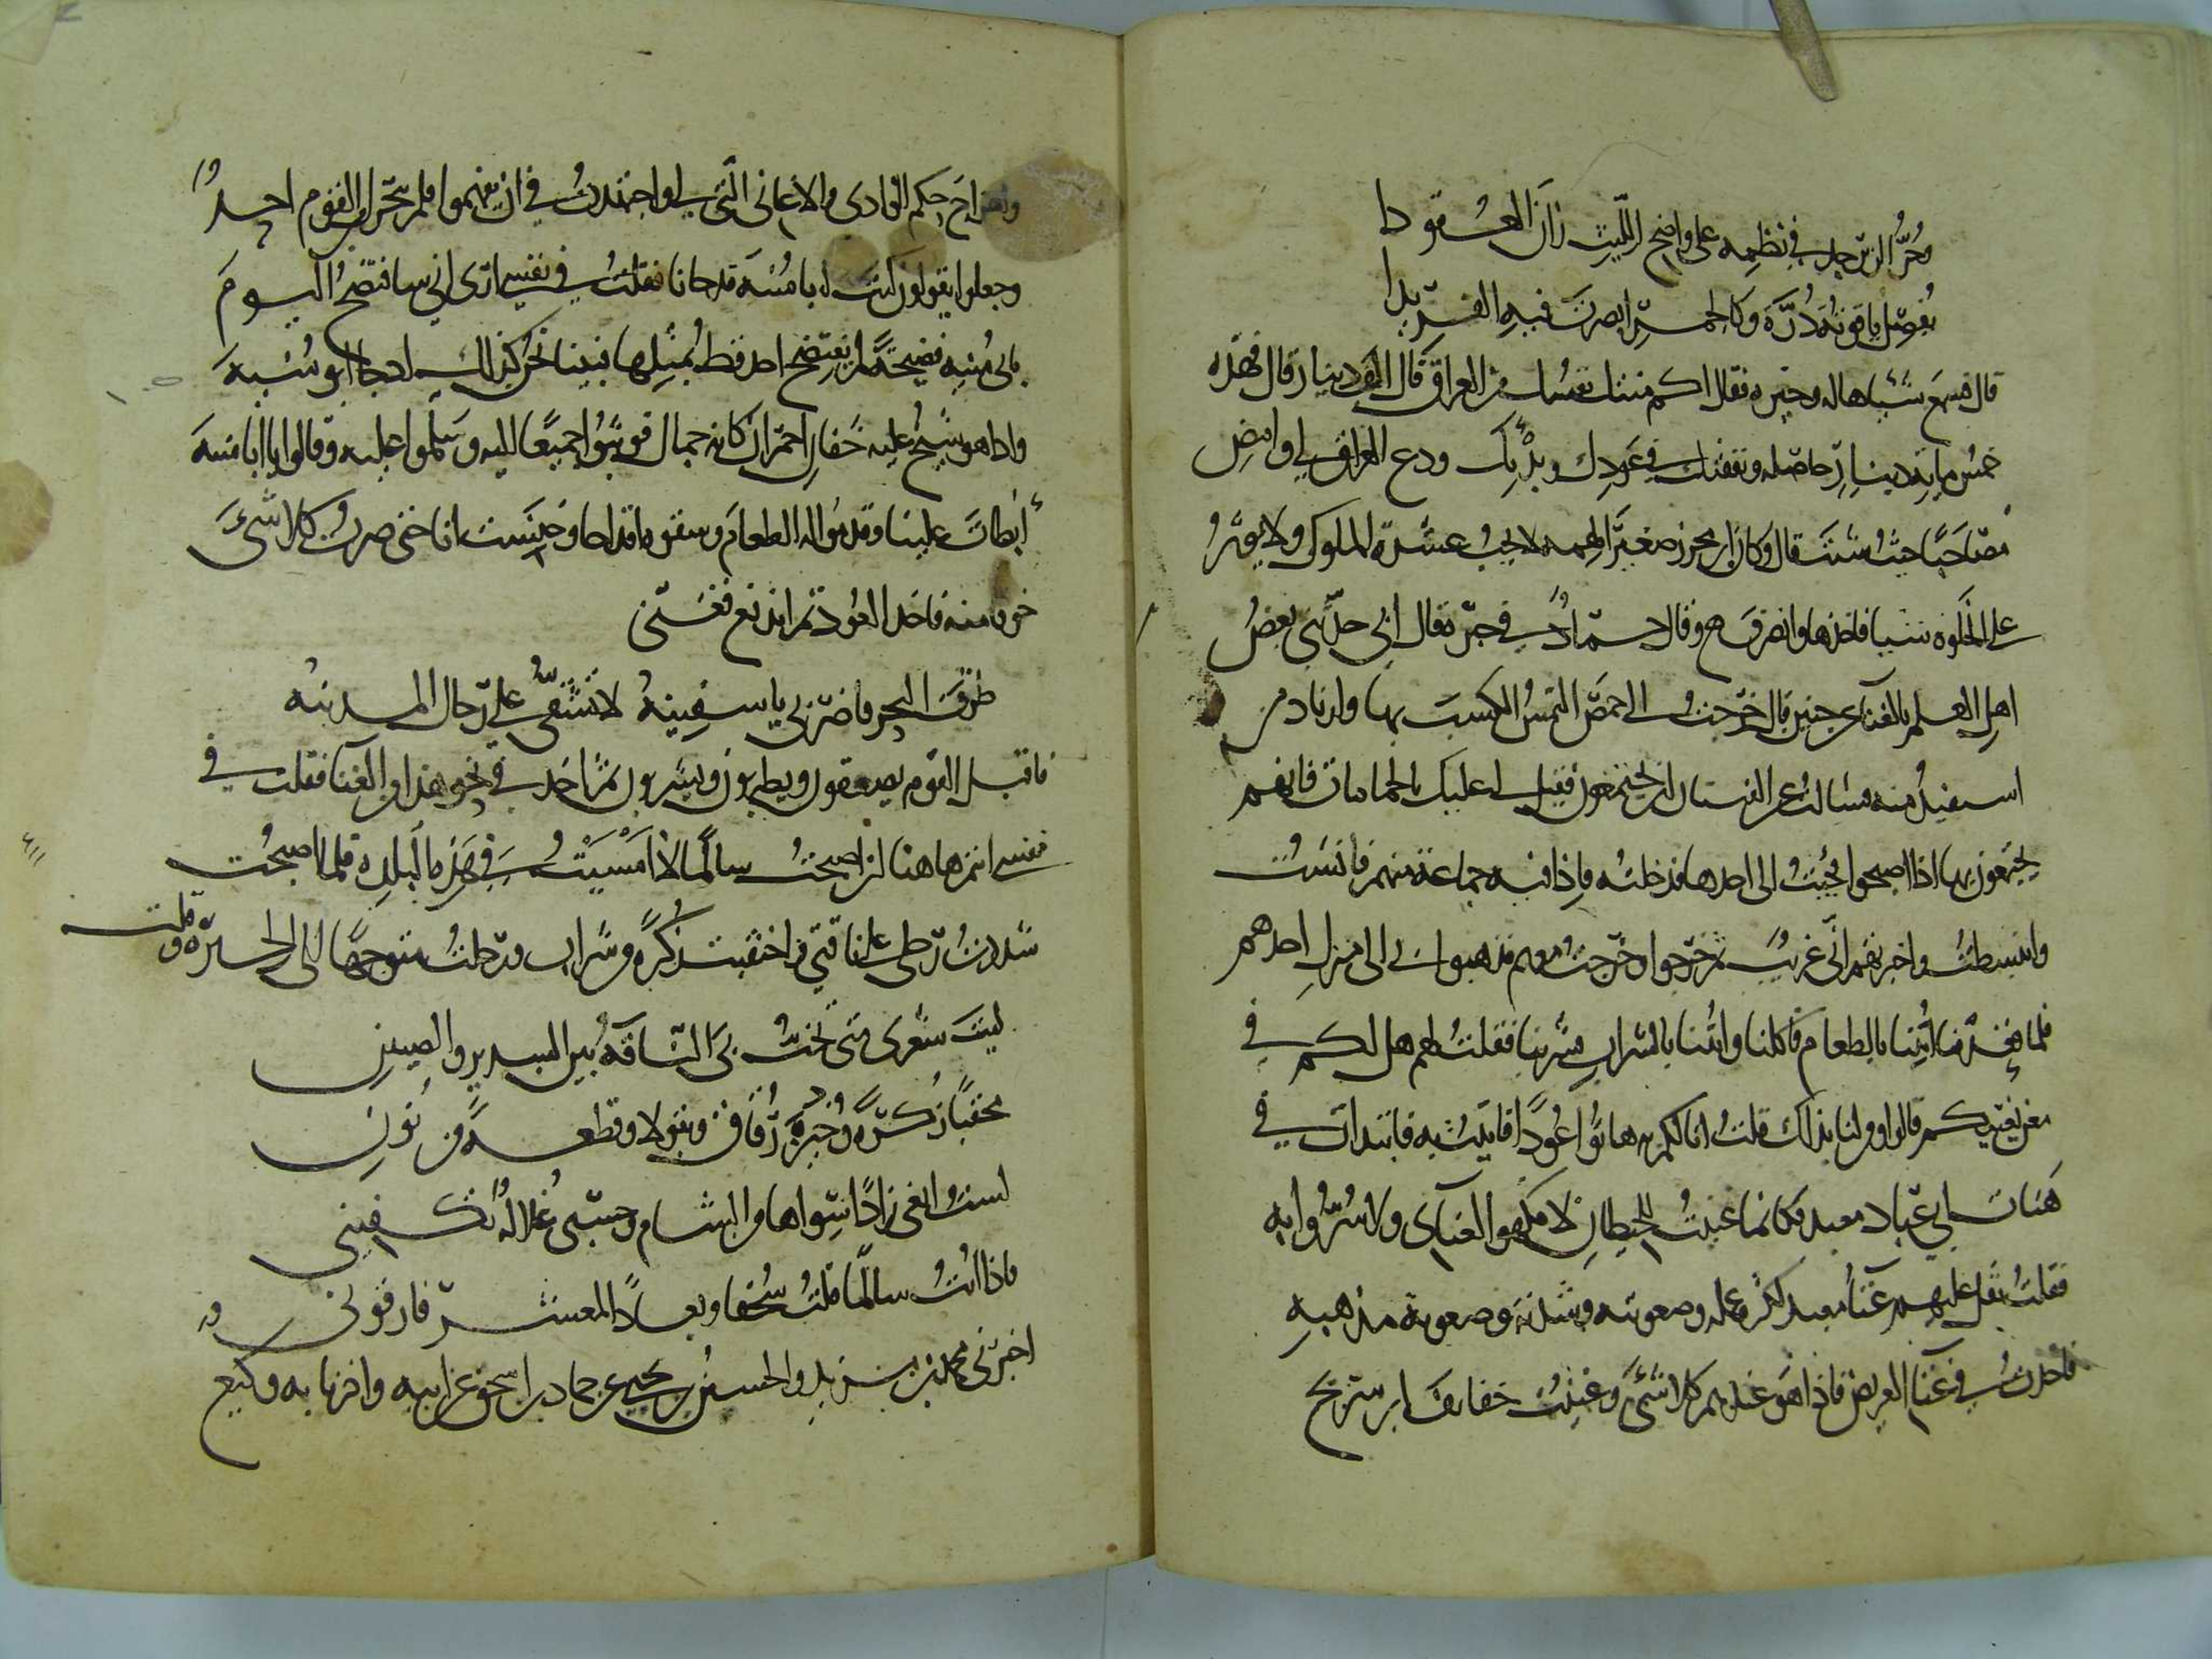 محر الزبرجد في نظمه على واضح الليت زان العقودا
يفصل ياقوته دره وكالجمر ابصرت فيه الفريدا
قال فسمع شيا هاله وحيره فقال له كم منتك نفسك من العراق قال الف دينار قال فهذه
خمس مايه دينار حاصله ونفقتك في عودك وبدئك ودع العراق لي وامض
مصاحبا حيث شئت قال وكان ابن محرز صغير الهمه لا يحب عشرة الملوك ولا يوثر
على الخلوه شيا فاخذها وانصرف وقال حماد في خبره قال ابي حدثني بعض
اهل العلم بالغناء عن حنين قال خرجت الى حمص التمس الكسب بها وارتاد من
استفيد منه فسالت عن الفتيان اين يجتمعون فقيل لي عليك بالحمامات فانهم
يجتمعون بها اذا اصبحوا فجئت الى احدها فدخلته فاذا فيه جماعة منهم فانست
وانبسطت واخبرتهم اني غريب ثم خرجوا وخرجت معهم فذهبوا بي الى منزل احدهم
فلما قعدنا اتينا بالطعام فاكلنا واتينا بالشراب فشربنا فقلت لهم هل لكم في
مغن يغنيكم قالوا ومن لنا بذلك قلت انا لكم به هاتوا عودا فاتيت به فابتدات في
هنات ابي عباد معبد فكانما غنيت للحيطان لا فكهوا لغناي ولا سروا به
فقلت ثقل عليهم غنا معبد لكثرة عمله وصعوبته وشدته وصعوبة مذهبه
فاخذت في غنا الغريض فاذا هو عندهم كلا شئ وغنيت خفايف ابن سريج
واهزاج حكم الوادى والاغانى التي لي واجتهدت في ان يفهموا فلم يتحرك من القوم احد
وجعلوا يقولون ليت ابا منبه قد جانا فقلت في نفسي ارى اني سافتضح اليوم
بابى منبه فضيحة لم يفتضح احد قط بمثلها فبينا نحن كذلك اذ جا ابو منبه
واذا هو شيخ عليه خفان احمران كانه جمال فوثبوا جميعا اليه وسلموا عليه وقالوا يا ابا منبه
ابطات علينا وقدموا له الطعام وسقوه اقداحا وخنست انا حتى صرت كلا شئ
خوفا منه فاخذ العود ثم اندفع فغنى
طرب البحر فاضربي يا سفينه لا تشقى على رجال المدينه
فاقبل القوم يصفقون ويطربون ويشربون ثم اخذ في نحو هذا من الغنا فقلت في
نفسي انتم هاهنا لئن اصبحت سالما لا امسيت في هذه البلده فلما اصبحت
شددت رحلي على ناقتي واحتقبت ركوة من شراب ورحلت متوجها الى الحيرة وقلت
ليت شعرى متى تخب بى الناقة بين السدير والصنين
محقبا ركوة وخبز رقاق وبقولا وقطعة من نون
لست ابغى زادا سواها من الشام وحسبى علالة تكفينى
فاذا ابت سالما قلت سحقا وبعادا لمعشر فارقونى
اخبرنى محمد بن مزيد والحسين بن يحيى عن حماد بن اسحق عن ابيه واخبرنا به وكيع